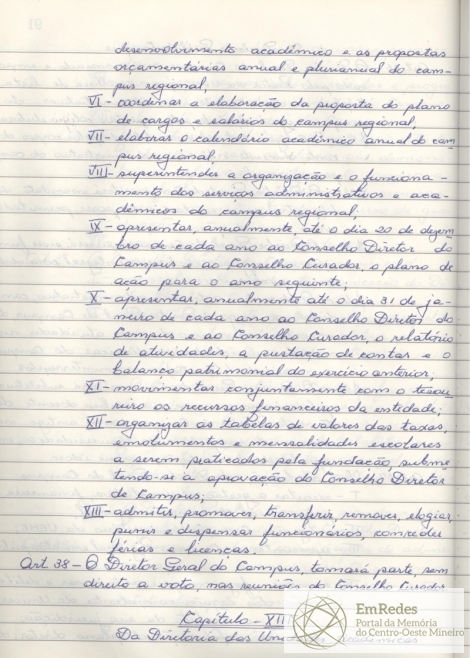 desenvolvimento acadêmico e as propostas
orçamentárias anual e plurianual do cam-
pus regional;
VI - coordenar a elaboração da proposta do plano
de cargos e salários do campus regional;
VII - elaborar o calendário acadêmico anual do cam
pus regional;
VIII - superintender a organização e o funciona-
mento dos serviços administrativos e aca-
dêmicos do campus regional;
IX - apresentar, anualmente, até o dia 20 de dezem
bro de cada ano ao Conselho Diretor do
Campus e ao Conselho Curador, o plano de
ação para o ano seguinte;
X - apresentar, anualmente até o dia 31 de ja-
neiro de cada ano ao Conselho Diretor do
Campus e ao Conselho Curador, o relatório
de atividades, a prestação de contas e o
balanço patrimonial do exercício anterior;
XI - movimentar conjuntamente com o tesou
reiro os recursos financeiros da entidade;
XII - organizar as tabelas de valores das taxas,
emolumentos e mensalidades escolares
a serem praticados pela fundação, subme
tendo-se à aprovação do Conselho Diretor
de Campus;
XIII - admitir, promover, transferir, remover, elogiar,
punir e dispensar funcionários, conceder
férias e licenças.
Art. 38 - O Diretor Geral do Campus, tomará parte, sem
direito a voto, nas reuniões do Conselho Curador
Capítulo - XIII
Da Diretoria das Acadêmicas
EmRedes
Portal da Memória
do Centro-Oeste Mineiro